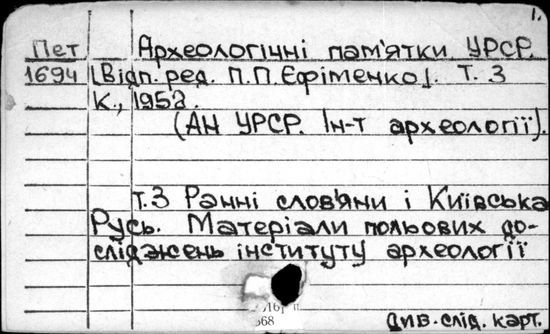 1.
Пет Археологічні пам'ятки УРСР.
1694 [Відп. ред. П.П.Єфіменко]. Т. 3
К., 1952.
(АН УРСР. Ін-т археології).
т.3 Ранні слов'яни і Київська
Русь. Матеріали польових до-
сліджень інституту археології
668
Див. слід. карт.